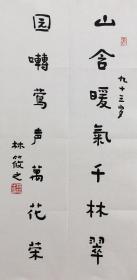 山含暖氣千林翠
九十三岁
园囀莺声萬花荣
林筱之